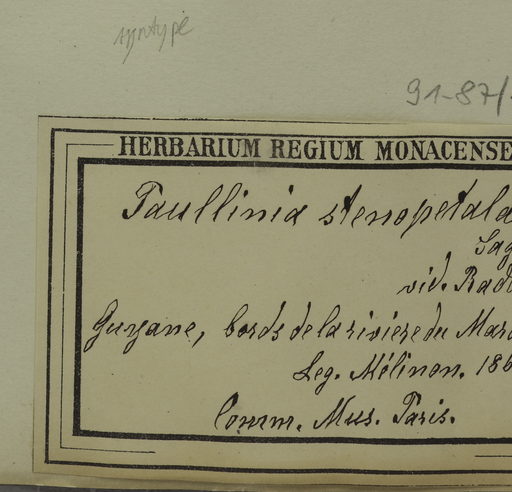 syntype
91-87/
HERBARIUM REGIUM MONACENSE
Paullinia stenopetala
Sag
vid. Radl
Guyane, bords de la rivière du Maro
Leg. Mélinon. 186
Comm. Mus. Paris.